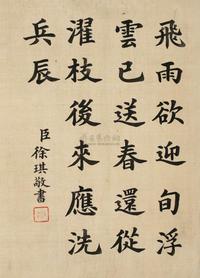 飛雨欲迎旬浮
雲已送春還從
濯枝後來應洗
兵辰
臣徐琪敬書